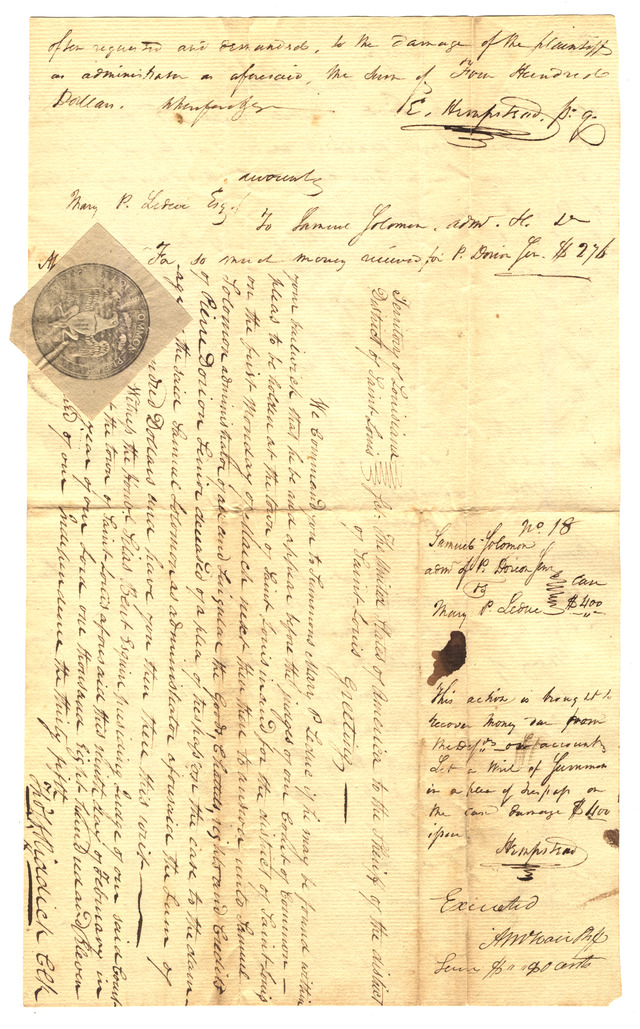 often requested and demanded, to the damage of the plaintiff
as administrator as aforesaid, the sum of Four Hundred
Dollars. wherefore &c
E. Hempstead. p. q.
account
Mary P. Leduc Esqr.
To Samuel Solomon. adm. &c. Dr
For so much money received for P. Dorion Senr. $276
Territory of Louisiana
District of Saint Louis
Sct. The United States of America to the Sheriff of the district
of Saint Louis Greeting
We command you to summons Mary P. Leduc if he may be found within
your bailiwick that he be and appear before the judges of our Court of Common
pleas to be holden at the town of Saint Louis in and for the district of Saint Louis
on the first Monday of March next then there to answer unto Samuel
Solomon administrator of all and singular the Goods Chattels, rights and Credits
of Pierre Dorion Senior deceased of a plea of trespass on the case to the dam-
age the said Samuel Solomon as administrator aforesaid the sum of
Dollars and have you then there this writ
Witness the honble. Silas Bent Esquire presiding Judge of our said Court
the town of Saint Louis aforesaid this ninth day of February in
year of our Lord one thousand eight hundred and eleven
of our independence the thirty fifth
Ths. F. Riddick Clk
No 18
Samuel Solomon
adm of P. Dorion Senr
vs
Mary P. Leduc
Case
$400
This action is brought to
recover money due from
the Deft. on account
Let a Writ of Summons
in a plea of trespass on
the case damage $400
issue
Hempstead
Executed